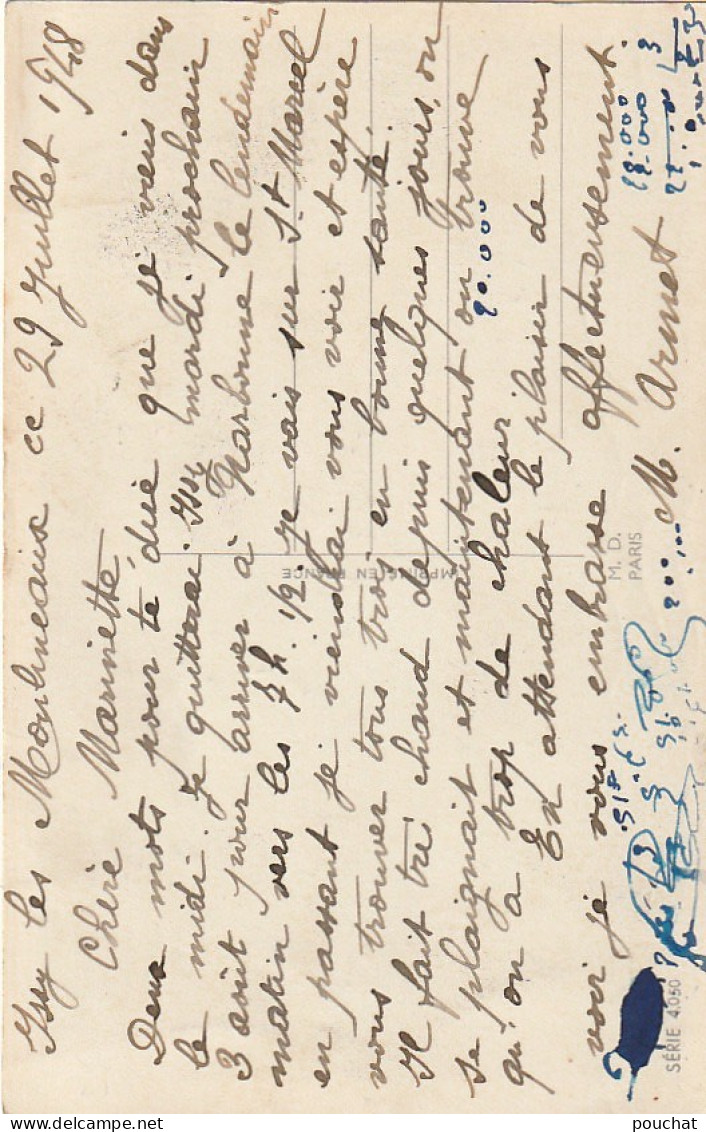 Issy les Moulineaux ce 29 Juillet 1948
Chère Marinette,
Deux mots pour te dire que je viens dans
le midi. Je quitterai Issy mardi prochain
3 août pour arriver à Narbonne le lendemain
matin vers les 7 h. 1/2. Je vais sur St Marcel
en passant je viendrai vous voir et espère
vous trouver tous trois en bonne santé.
Il fait très chaud depuis quelques jours, on
se plaignait et maintenant on trouve
qu'on a trop de chaleur
En attendant le plaisir de vous
voir je vous embrasse affectueusement.
M. Armet
90.000
28.000
IMPRIMÉ EN FRANCE
M. D.
PARIS
SÉRIE 4.050
pouchat